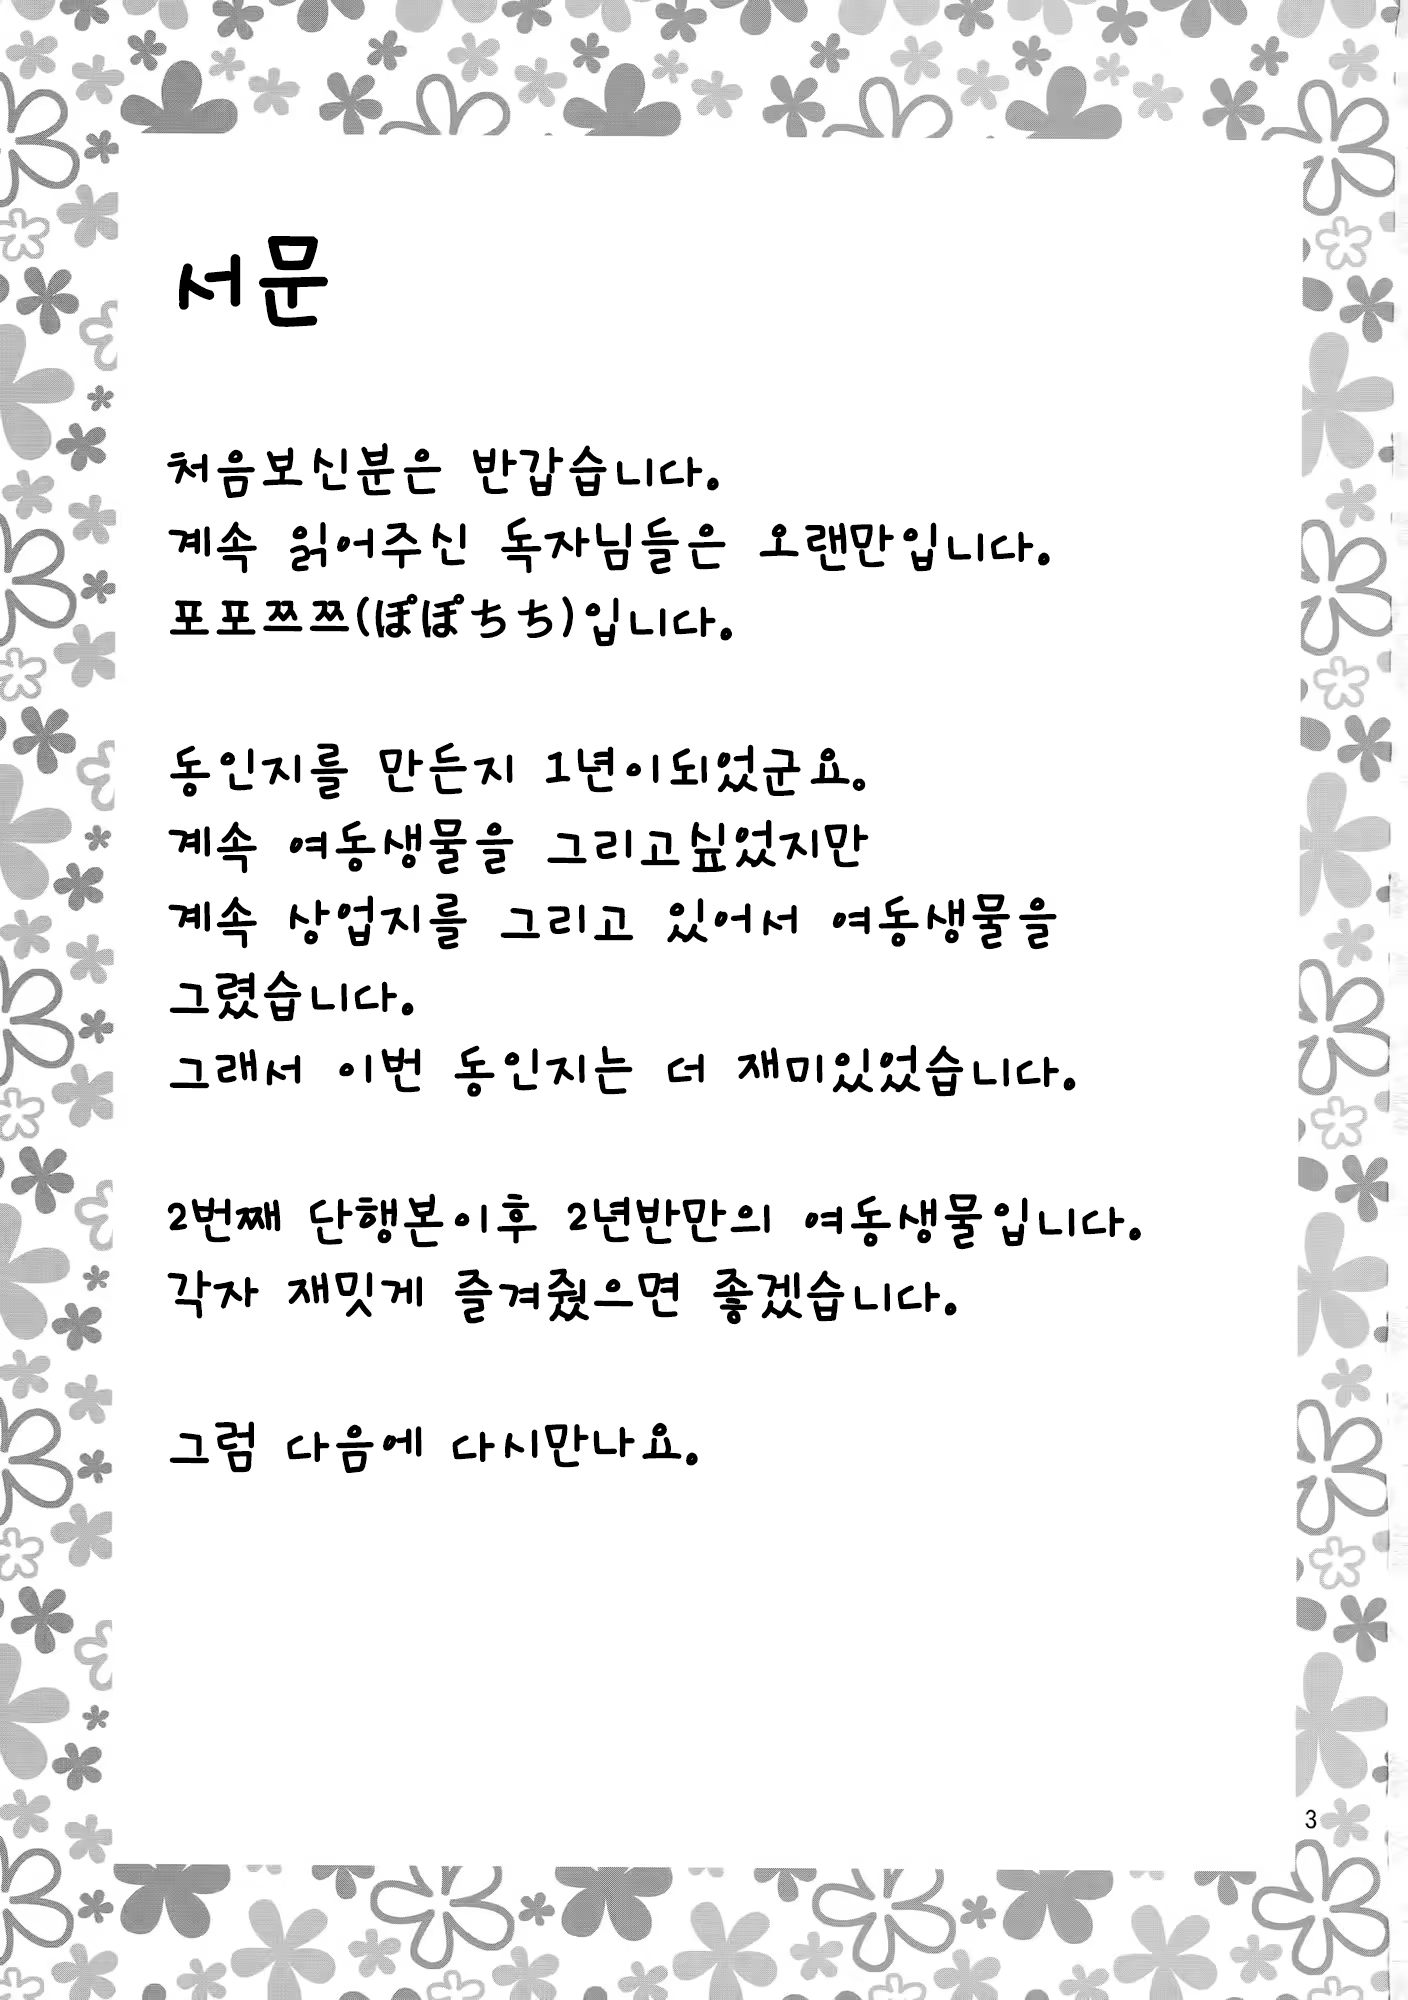 서문
처음보신분은 반갑습니다.
계속 읽어주신 독자님들은 오랜만입니다.
포포쯔쯔(ぽぽちち)입니다.
동인지를 만든지 1년이되었군요。
계속 여동생물을 그리고싶었지만
계속 상업지를 그리고 있어서 여동생물을
그렸습니다.
그래서 이번 동인지는 더 재미있었습니다.
2번째 단행본이후 2년반만의 여동생물입니다.
각자 재밋게 즐겨줬으면 좋겠습니다.
그럼 다음에 다시만나요.
3